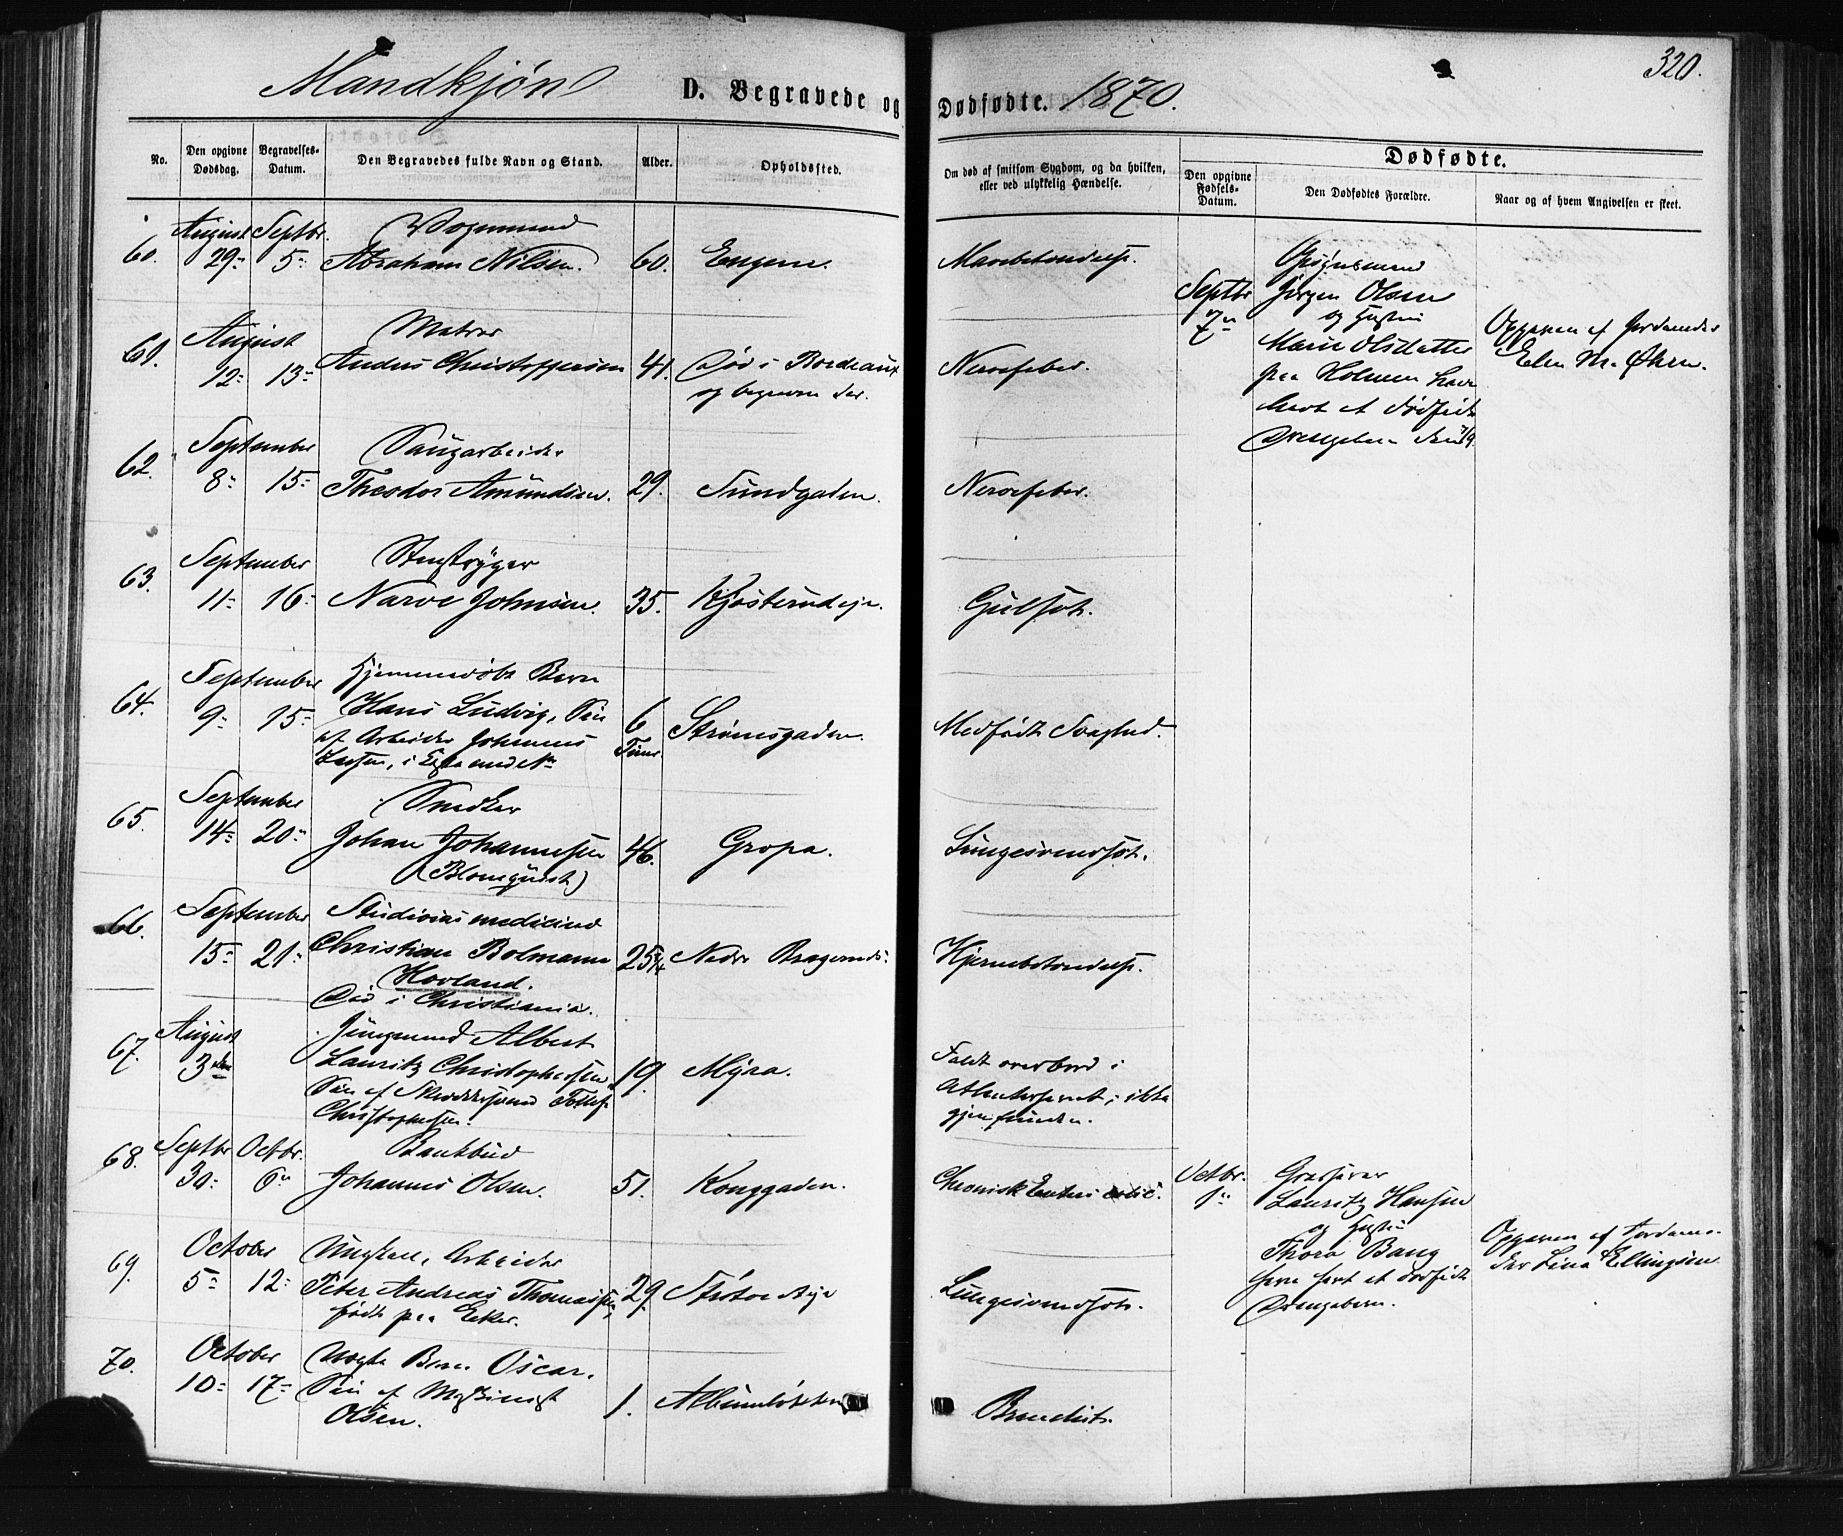 320.
Mandkjøn D. Begravede og Dødfødte. 1870.
No.
Den opgivne Dødsdag.
Begravelses-Datum.
Den Begravedes fulde Navn og Stand.
Alder.
Opholdssted.
Om død af smitsom Sygdom, og da hvilken,
eller ved ulykkelig Hændelse.
Dødfødte.
Den opgivne Fødsels-Datum.
Den Dødfødtes Forældre.
Naar og af hvem Angivelsen er skeet.
August Septbr.
60. 29- 5- Abraham Nilsen. 60. Engene. Mavebetændelse.
August Matros
61. 12- 13- Anders Christoffersen 41. Død i Bordeaux
og begraven der. Nervefeber.
September Saugarbeider
62. 8- 15- Theodor Amundsen. 29. Tundgaden. Nervefeber.
September
63. 11- 16- Narve Johnsen. 35. Gulsot.
September Hjemmedøbt Barn
64. 9- 15- Hans Ludvig, Søn
af Arbeider Johannes
6 Timer Strømsgaden. Medfødt Svaghed.
September Snedker
65. 14- 20- Johan Johannesen
(Blomquist) 46. Gropa. Lungesvindsot.
September Studiosus medicinæ
66. 15- 21- Christian Bolmann
Hovland.
Død i Christiania. 25 Nedre Bragernes. Hjernebetændelse.
August Jungmand Albert
67. 3die Lauritz Christophersen
Søn af
Christophersen. 19. Myra. Faldt overbord i
Atlanterhavet, ikke
gjenfunden.
Septbr Octbr. Bankbud
68. 30- 6- Johannes Olsen. 51. Konggaden. Chronisk
October Ungkarl, Arbeider
69. 5- 12- Peter Andreas Thomassen,
født paa Eeker. 29. Lungesvindsot.
October Barn Oscar,
70. 10- 17- Søn af Maskinist
Olsen. 1. Albumløkken Bronchit.
Septbr 7-
Jørgen Olsen
og Hustru
Marie Olsdatter
paa Holmen have
havt et dødfødt
Drengebarn den 7/9
Opgiven af Jordemoder
Elen M. Øhrn.
Octbr. 1-
Lauritz Hansen
og Hustru
Thora Bang
have havt et dødfødt
Drengebarn.
Opgiven af Jordemo-
der Lina Ellingsen.